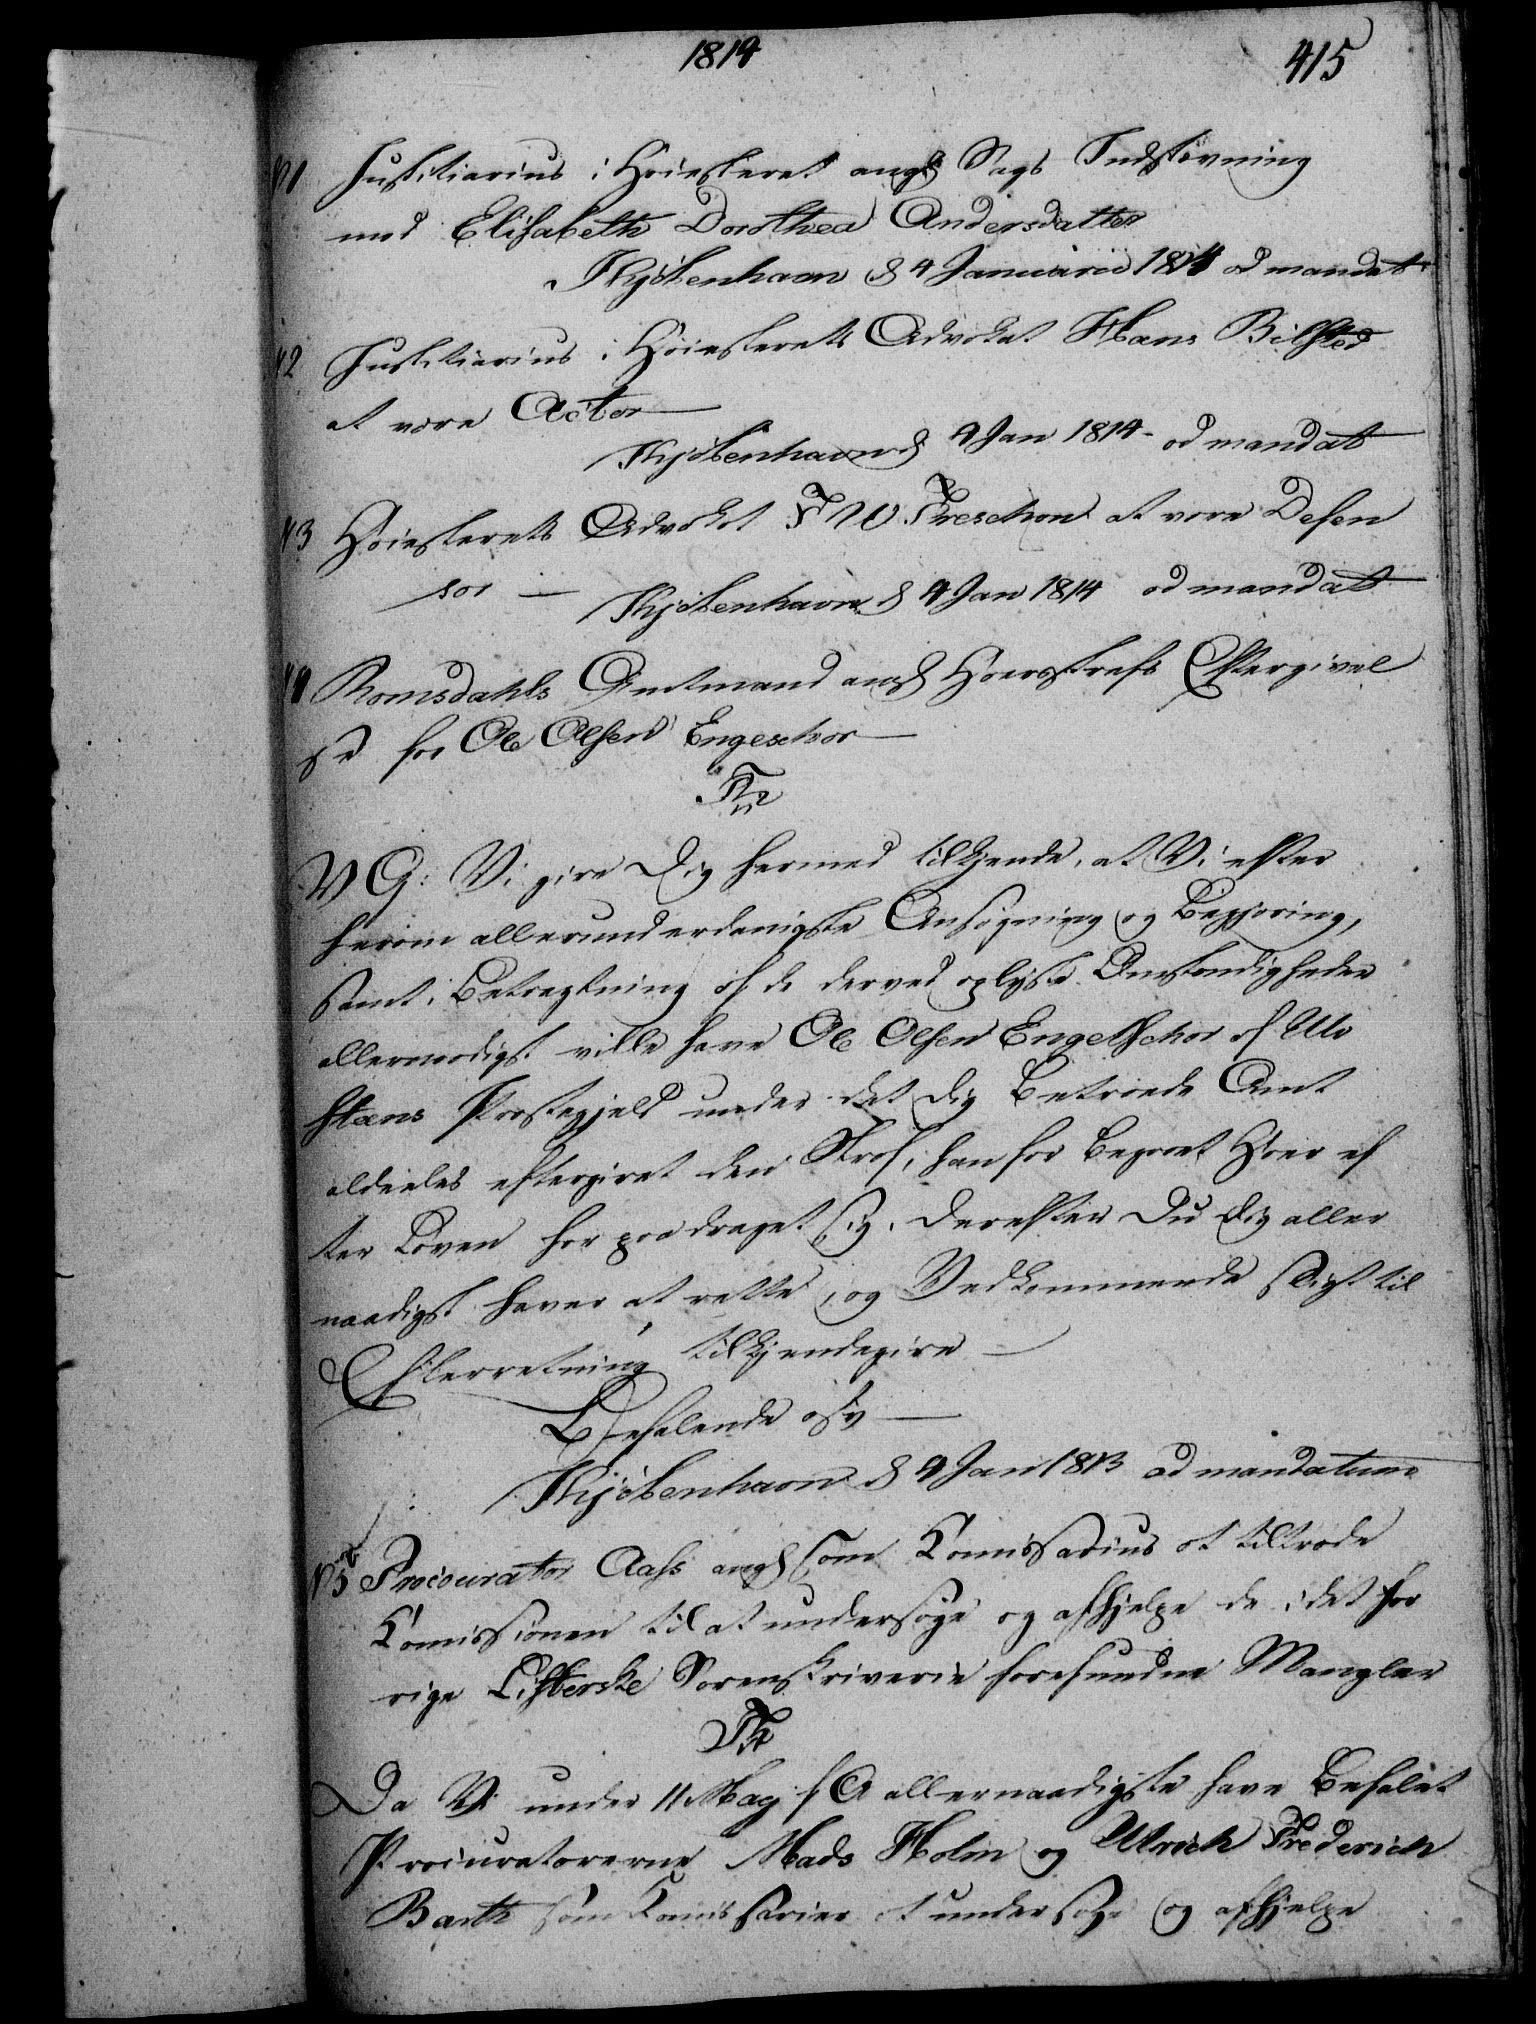 1814
415
N 1 Justitiarius i Høiesteret angd Sags Indstævning
mod Elisabeth Dorothea Andersdatter
Kjøbenhavn d 4 Januarii 1814 ad mandat
N 2 Justitiarius i Høiesterets Advokat Hans Bilsted
at være Actor
Kjøbenhavn d 4 Jan 1814 ad mandat
N 3 Høiesterets Advokat F W Treschow at være Defen
sor Kjøbenhavn d 4 Jan 1814 ad mandat
N 4 Romsdahls Amtmand angd Hoersstrafs Eftergivel
se for Ole Olsen Engeschor
VG: Vi give Dig hermed tilkjende, at Vi efter
herom allerunderdanigste Ansøgning og Begjæring,
samt i Betragtning af de derved oplyste Omstændigheder
allernaadigst ville have Ole Olsen Engelschor af Ulv
stens Præstegjeld under det dig betroede Amt
aldeeles eftergivet den Straf, han for begaaet Hoer ef
ter Loven har paadraget sig. Derefter Du dig aller
naadigst haver at rette, og Vedkommende sligt til
Efterretning tilkjendegive
Befalende osv
Kjøbenhavn d 4 Jan 1813 ad mandatum
N 5 Procurator Aass angd som Komissarius at tiltræde
Komissionen til at undersøge og afhjelpe de i det for
rige Listerske Sorenskriverie forefundne Mangler
Da Vi under 11 May f A allernaadigste have befalet
Procuratorerne Mads Holm og Ulrich Frederich
Barth som Komissarier at undersøge og afhjelpe